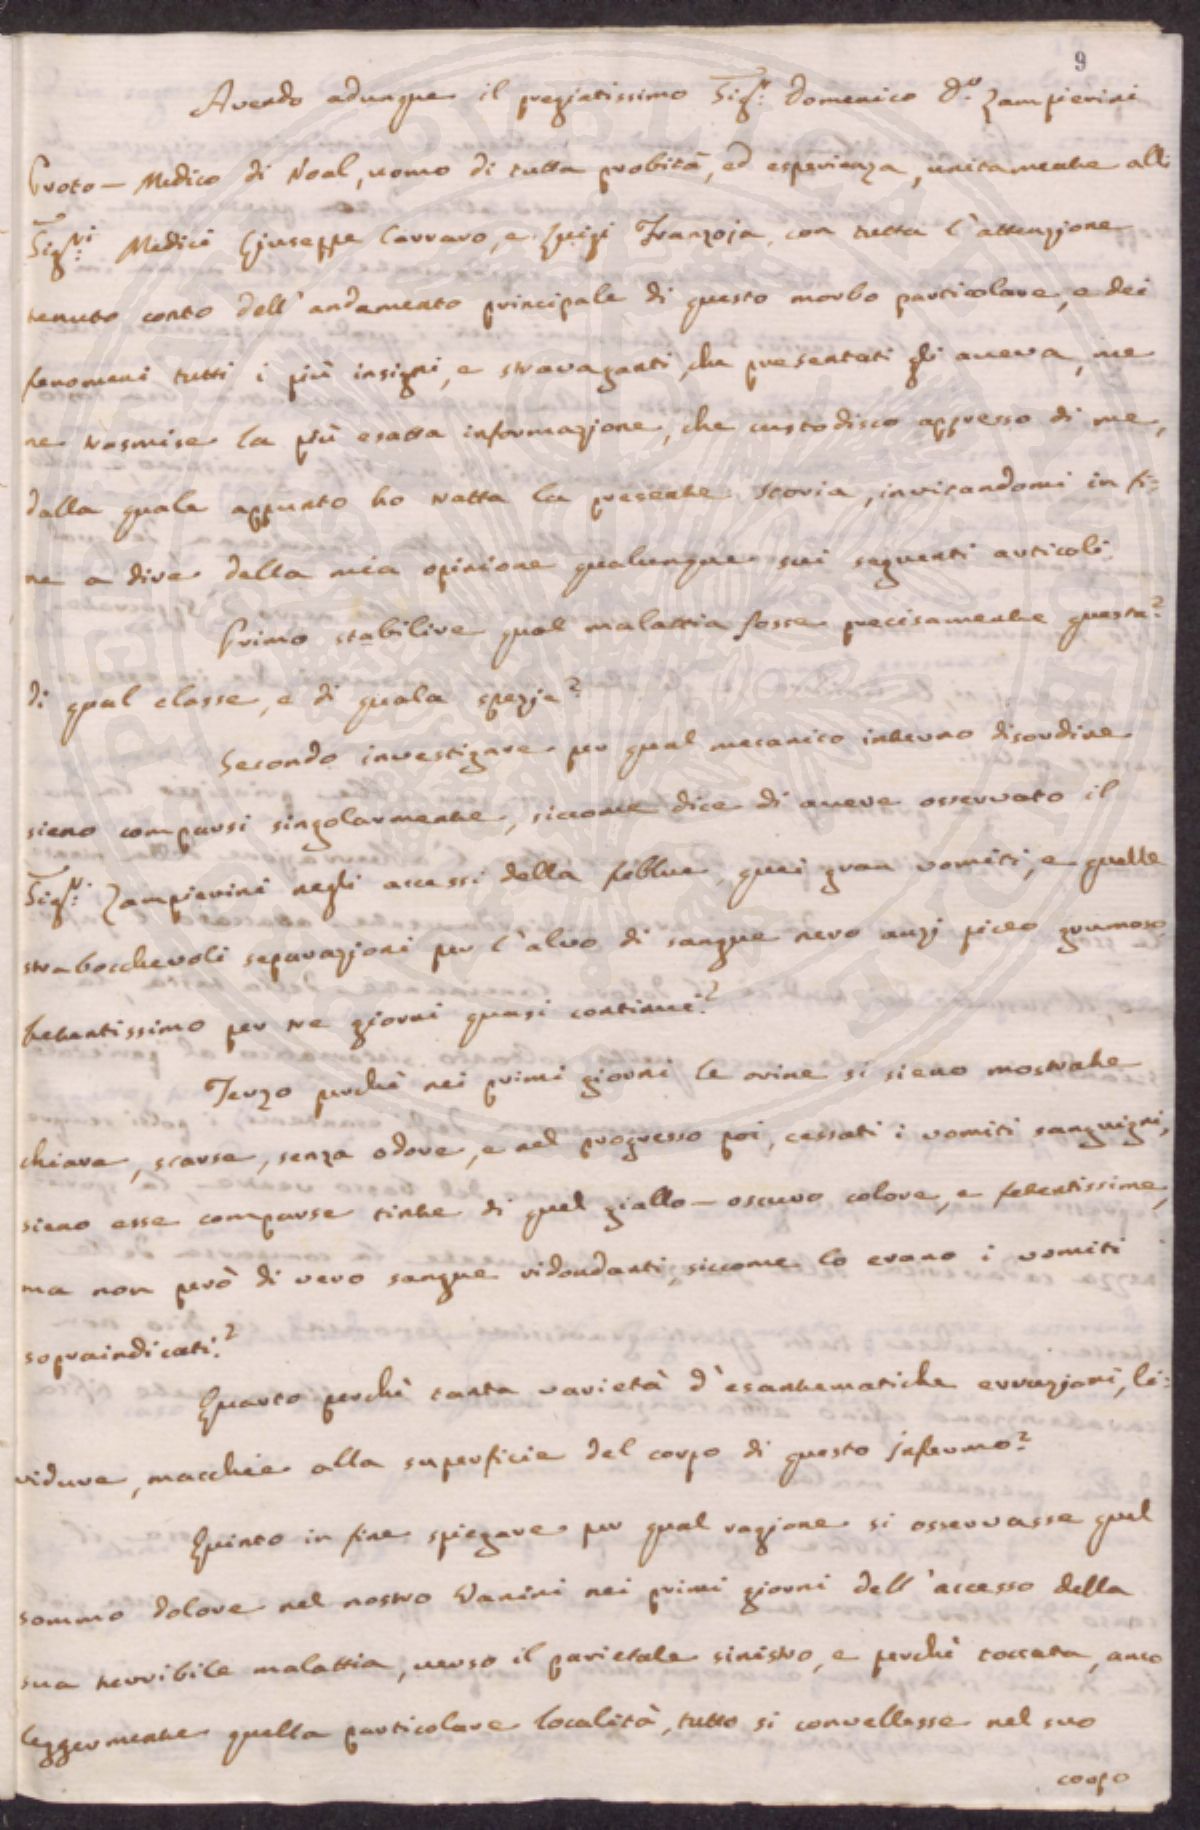 9
Avendo adunque il pregiatissimo Sigr: Domenico Dr. Zampierini
Proto-Medico di Noal, uomo di tutta probità, ed esperienza, unitamente alli
Sigri: Medici Giuseppe Carraro, e Luigi Franzoja, con tutta l'attenzione
tenuto conto dell'andamento principale di questo morbo particolare, e dei
fenomeni tutti i più insigni, e stravaganti, che presentati gli aueva, me
ne trasmise la più esatta informazione, che custodisco appresso di me,
dalla quale appunto ho tratta la presente storia, invitandomi in fi=
ne a dire della mia opinione qualunque sui seguenti articoli.
Primo stabilire qual malattia fosse precisamente questa?
di qual classe, e di quale spezie?
Secondo investigare per qual mecanico interno disordine
sieno comparsi singolarmente, siccome dice di auere osservato il
Sigr: Zampierini negli accessi della febbre, quei gran vomiti, e quelle
strabocchevoli separazioni per l'alvo di sangue nero anzi piceo grumoso
fetentissimo per tre giorni quasi continui?
Terzo perchè nei primi giorni le orine si sieno mostrate
chiare, scarse, senza odore, e nel progresso poi, cessati i vomiti sanguigni,
sieno esse comparse tinte di quel giallo-oscuro colore, e fetentissime,
ma non però di vero sangue ridondanti, siccome lo erano i vomiti
sopraindicati?
Quarto perchè tanta varietà d'esantematiche erruzioni, li=
vidure, macchie alla superficie del corpo di questo infermo?
Quinto in fine spiegare per qual ragione si osservasse quel
sommo dolore nel nostro Vanini nei primi giorni dell'accesso della
sua terribile malattia, verso il parietale sinistro, e perchè toccata, anco
leggermente quella particolare località, tutto si convellesse nel suo
corpo